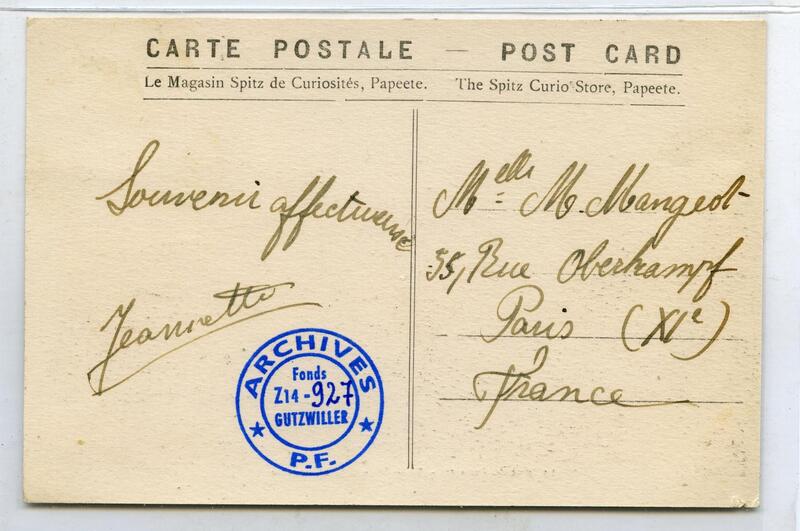 CARTE POSTALE — POST CARD
Le Magasin Spitz de Curiosités, Papeete. The Spitz Curio Store, Papeete.
Souvenir affectueux
Jeannette
ARCHIVES
Fonds
Z14-927
GUTZWILLER
P.F.
Melle M. Mangeot
55, Rue Oberkampf
Paris (XIe)
France